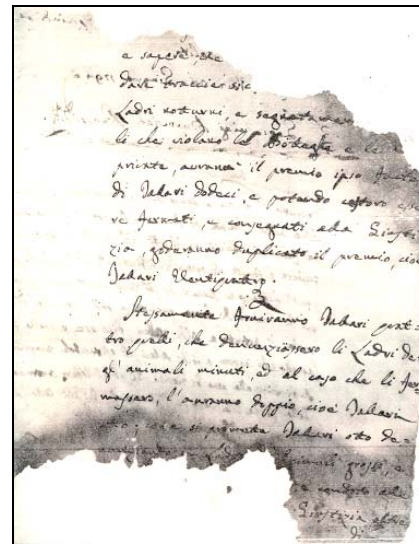 e sapere, che
dare
Ladri notturni, e segnatamen
li che violano le Botteghe e le
private, avranno il premio ipso facto
di Tallari dodeci, e potendo costoro esse
re fermati, e consegnati alla Giusti
zia, goderanno duplicato il premio, cioè
Tallari Ventiquattro.
Stessamente fruiranno Tallari quat
tro quelli, che denunziassero li Ladri de
gl'animali minuti, ed al caso che li fer
massero, l'avranno doppio, cioè Tallari
otto; Tallari otto de=
animali grossi, e
condotto alla
Giustizia oltre